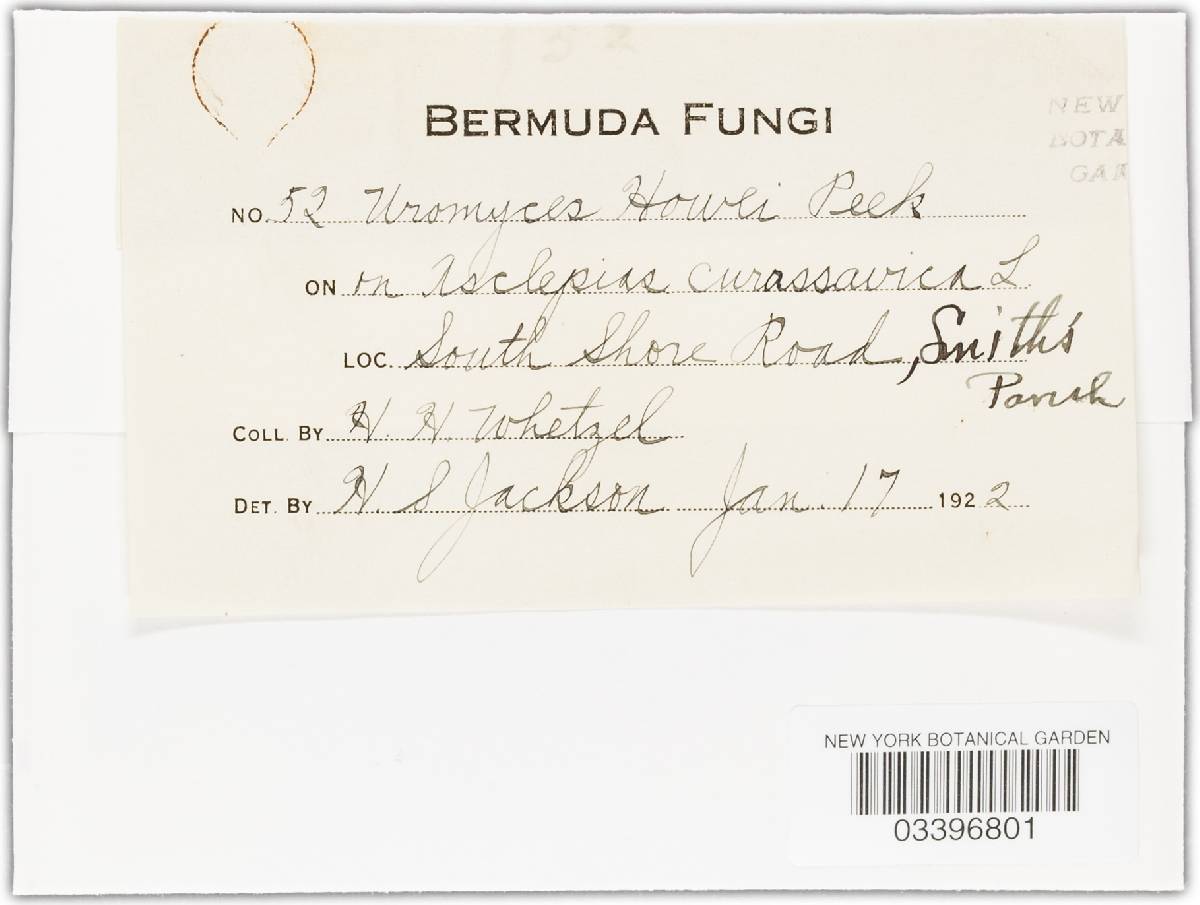 BERMUDA FUNGI
NEW
BOTA
GAR
NO. 52 Uromyces Howei Peck
ON on Asclepias curassavica L
LOC. South Shore Road, Smith's
Parish
COLL. BY H. H Whetzel
DET. BY H. S Jackson Jan. 17 1922
NEW YORK BOTANICAL GARDEN
03396801